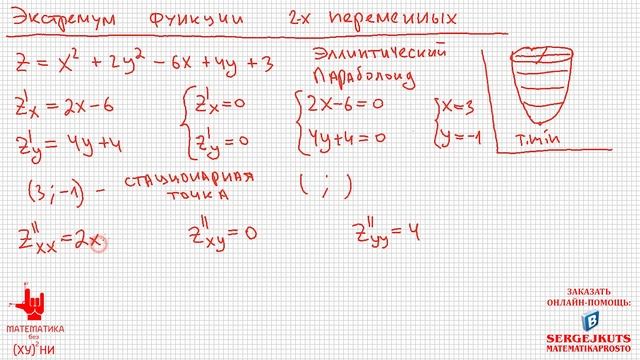 Экстремум функции 2-х переменных
Z = x² + 2y² - 6x + 4y + 3
Эллиптический
Параболоид
Z'x = 2x - 6
Z'y = 4y + 4
{ Z'x = 0
Z'y = 0
{ 2x - 6 = 0
4y + 4 = 0
{ x = 3
y = -1
т.min
(3 ; -1) - стационарная
точка
( ; )
Z''xx = 2x
Z''xy = 0
Z''yy = 4
МАТЕМАТИКА
без
(ХУ)²НИ
ЗАКАЗАТЬ
ОНЛАЙН-ПОМОЩЬ:
B
SERGEJKUTS
MATEMATIKAPROSTO